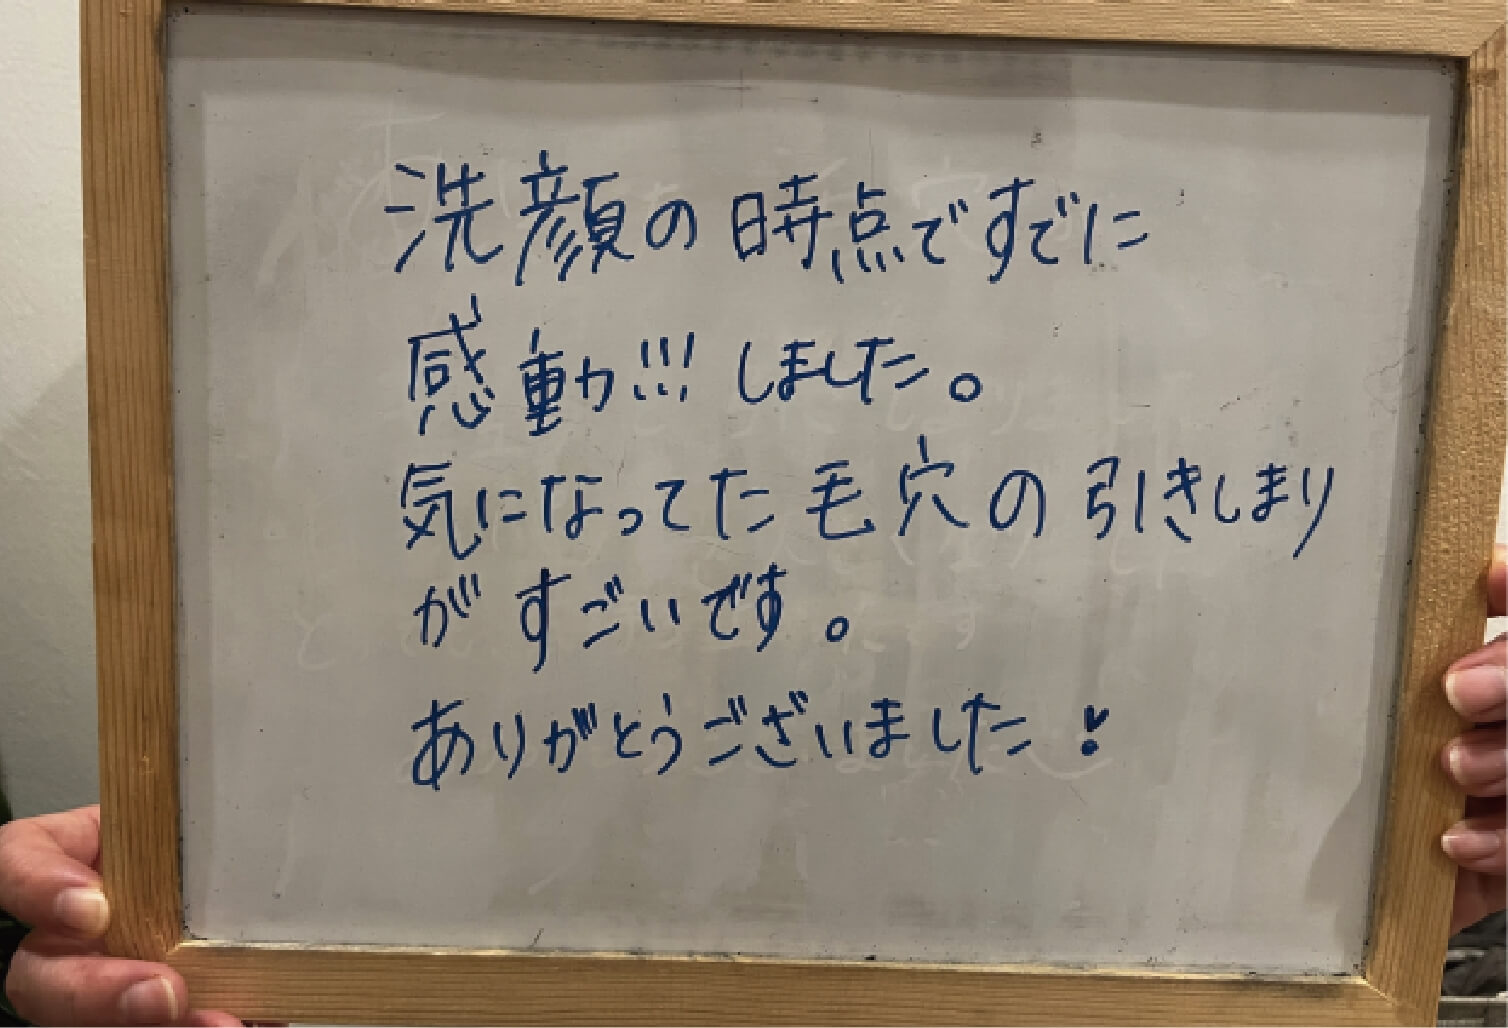 洗顔の時点ですでに
感動!!!しました。
気になってた毛穴の引きしまり
がすごいです。
ありがとうございました!